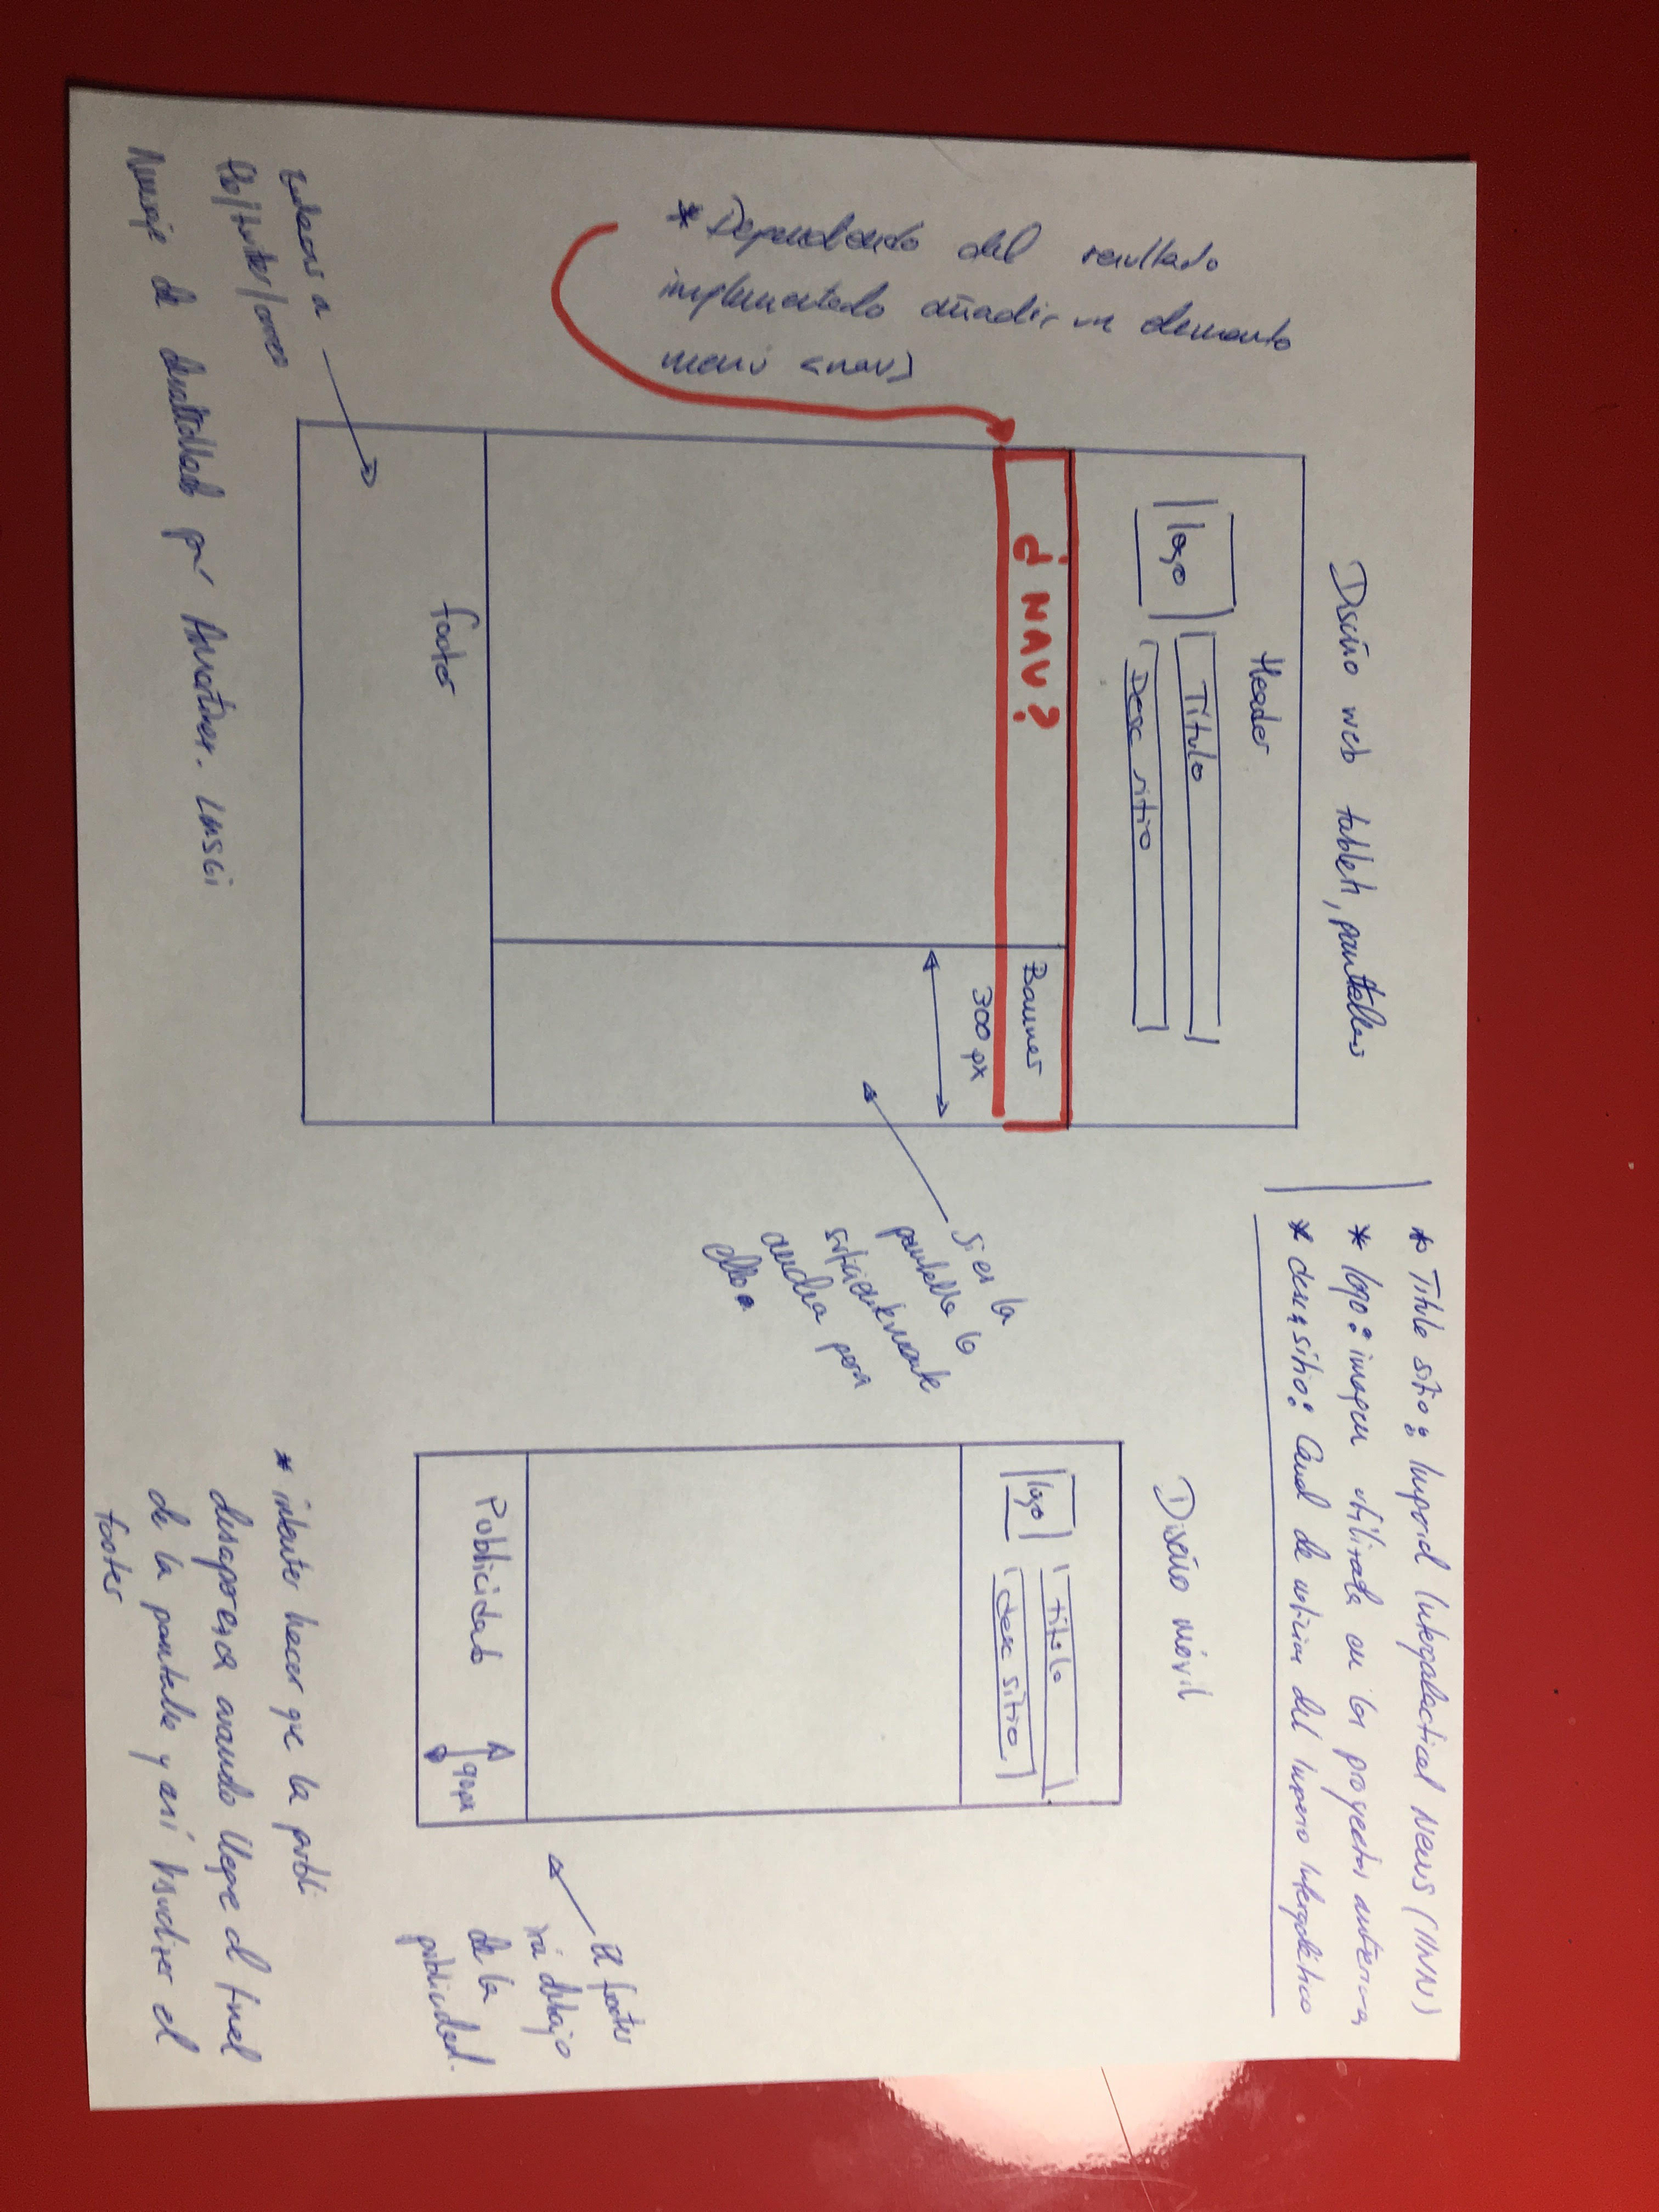 * Titulo sitio: Imperial Intergalactical News (IINN)
* logo: imagen utilizada en los proyectos anteriores
* desc sitio: Canal de noticias del Imperio Intergaláctico
Diseño web tablets, pantallas
Header
logo
Título
Desc sitio
¿NAV?
Banner
300 px
Si es la
pantalla lo
suficientemente
ancha para
ello.
footer
* Dependiendo del resultado
implementado añadir un elemento
menú <nav>
Enlaces a
fb/twitter/correo
Mensaje de desarrollado por AMartínez.
Diseño móvil
logo
título
desc sitio
Publicidad
90px
El footer
irá debajo
de la
publicidad.
* intentar hacer que la publi
desaparezca cuando llegue al final
de la pantalla y así visualizar el
footer